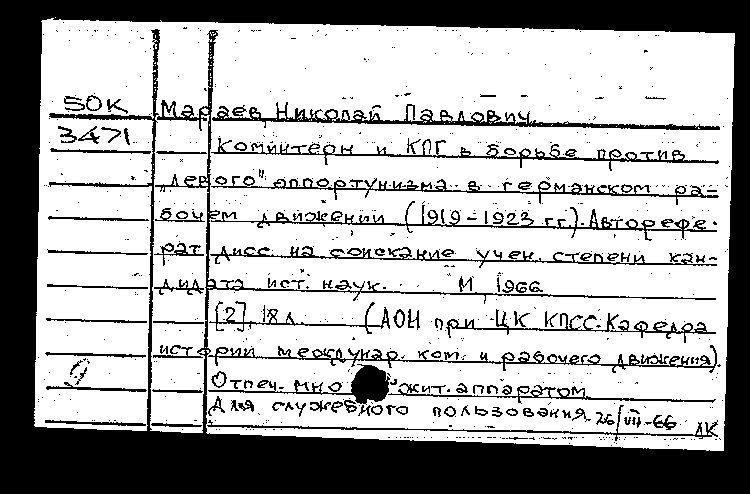 50К Мараев, Николай Павлович.
3471 Коминтерн и КПГ в борьбе против
„левого" оппортунизма в германском ра=
бочем движении (1919-1923 гг.). Авторефе-
рат дисс. на соискание учен. степени кан-
дидата ист. наук. М., 1966.
[2], 18 л. (АОН при ЦК КПСС. Кафедра
истории междунар. ком. и рабочего движения).
9 Отпеч. мно жит. аппаратом
Для служебного пользования. 26/VII-66 ЛК